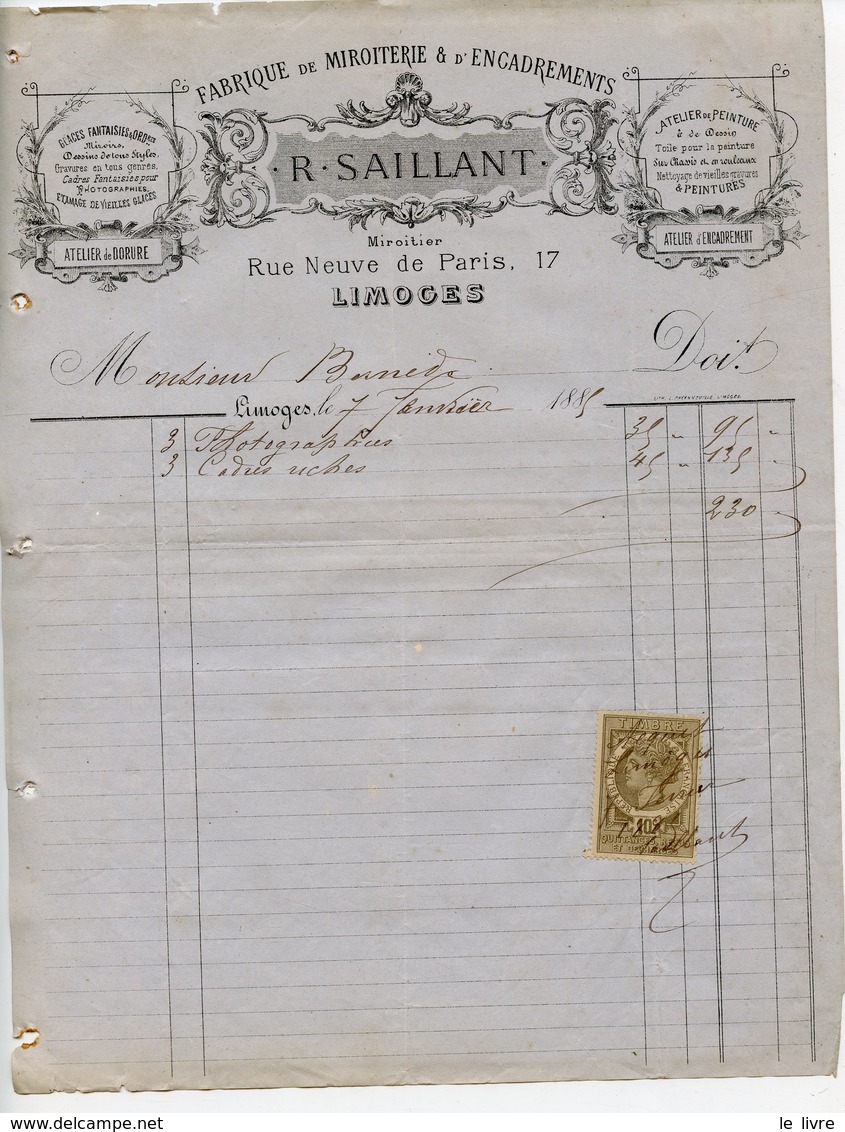 FABRIQUE DE MIROITERIE & D'ENCADREMENTS
R. SAILLANT
Miroitier
Rue Neuve de Paris, 17
LIMOGES
GLACES FANTAISIES & DORÉES
Miroirs,
Dessins de tous Styles,
Gravures en tous genres,
Cadres Fantaisies pour
PHOTOGRAPHIES,
ETAMAGE DE VIEILLES GLACES
ATELIER de DORURE
ATELIER DE PEINTURE
& de Dessin
Toile pour la peinture
Sur Chasis et en rouleaux
Nettoyage de vieilles gravures
& PEINTURES
ATELIER d'ENCADREMENT
Monsieur Doit
LIMOGES
Limoges, le 7 Janvier 1885
3 Photographies 35 " 95 "
3 Cadres riches 45 " 135 "
230 "
TIMBRE
10c
QUITTANCES
ET
le livre